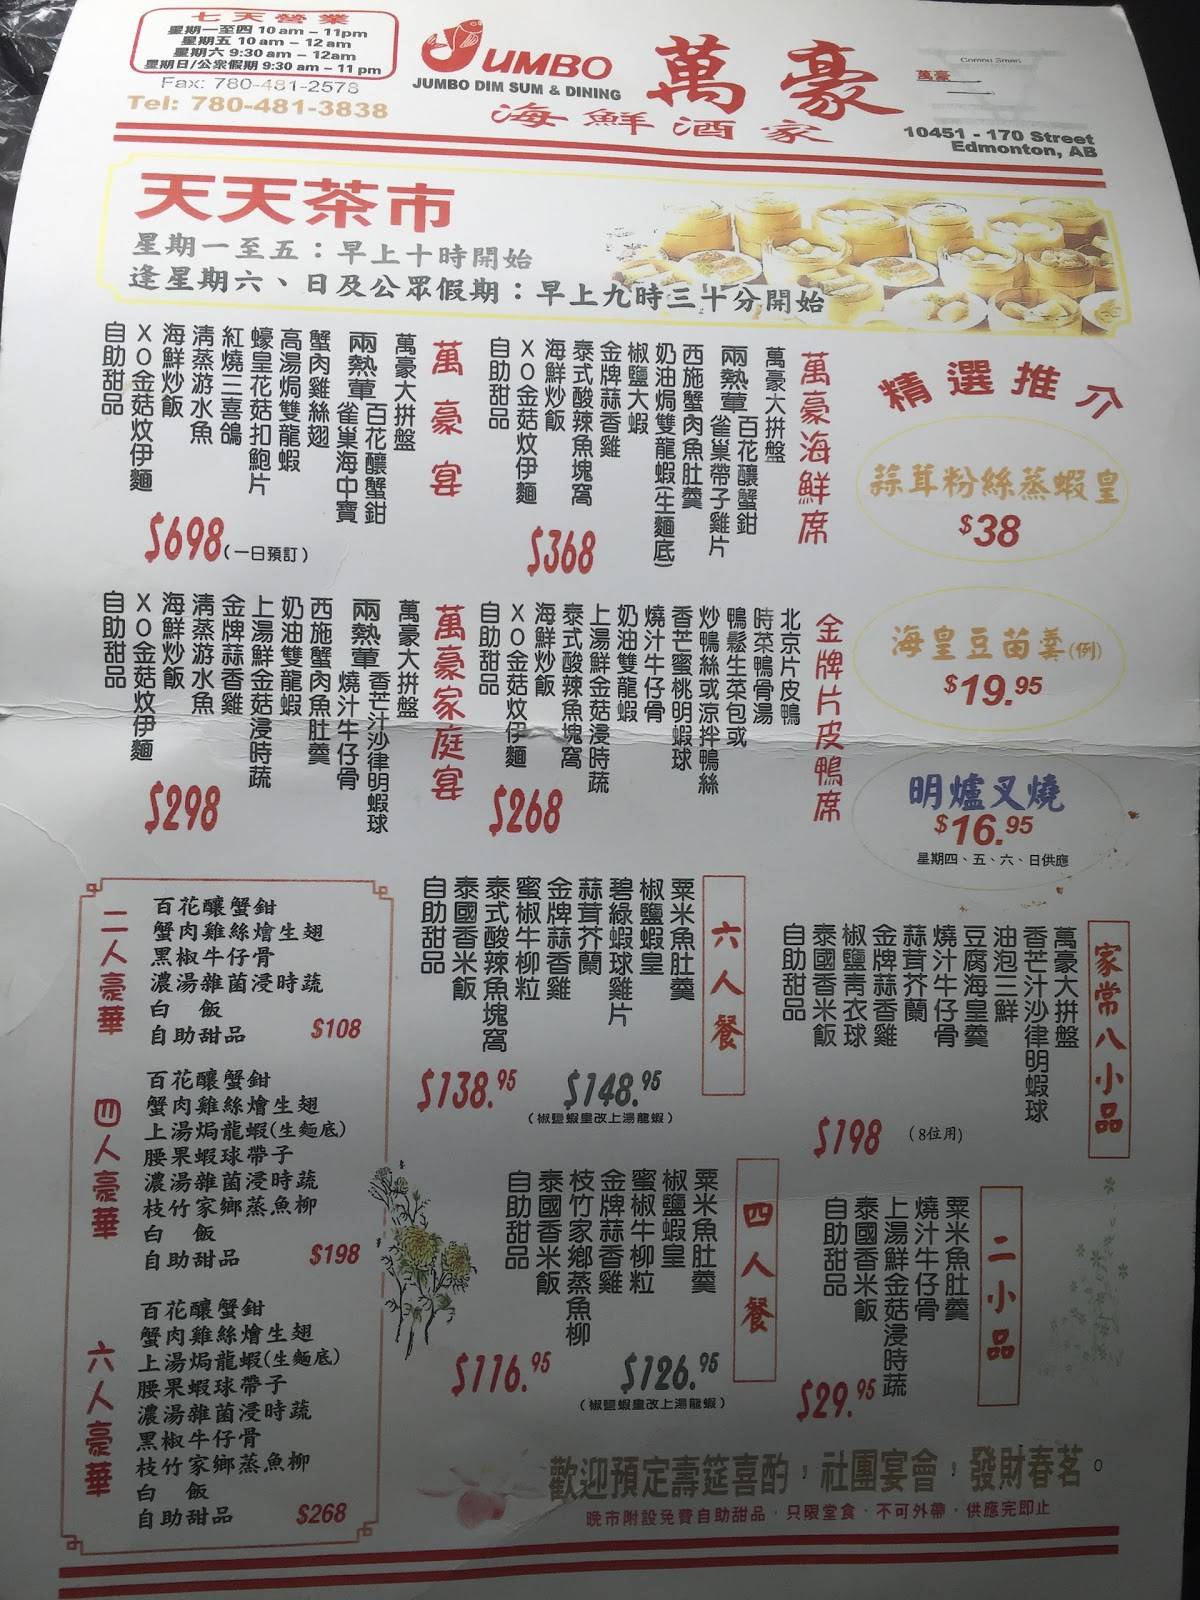 七天營業
星期一至四 10 am - 11pm
星期五 10 am - 12 am
星期六 9:30 am - 12am
星期日/公眾假期 9:30 am - 11 pm
Fax: 780-481-2578
Tel: 780-481-3838
JUMBO
JUMBO DIM SUM & DINING
萬豪
海鮮酒家
萬豪二
10451 - 170 Street
Edmonton, AB
天天茶市
星期一至五：早上十時開始
逢星期六、日及公眾假期：早上九時三十分開始
精選推介
蒜茸粉絲蒸蝦皇
$38
海皇豆苗羹(例)
$19.95
明爐叉燒
$16.95
星期四、五、六、日供應
萬豪海鮮席
萬豪大拼盤
兩熱葷
百花釀蟹鉗
雀巢帶子雞片
西施蟹肉魚肚羹
奶油焗雙龍蝦(生麵底)
椒鹽大蝦
金牌蒜香雞
泰式酸辣魚塊窩
海鮮炒飯
XO金菇炆伊麵
自助甜品
$368
萬豪宴
萬豪大拼盤
兩熱葷
百花釀蟹鉗
雀巢海中寶
蟹肉雞絲翅
高湯焗雙龍蝦
蠔皇花菇扣鮑片
紅燒三喜鴿
清蒸游水魚
海鮮炒飯
XO金菇炆伊麵
自助甜品
$698(一日預訂)
金牌片皮鴨席
北京片皮鴨
時菜鴨骨湯
鴨鬆生菜包或
炒鴨絲或涼拌鴨絲
香芒蜜桃明蝦球
燒汁牛仔骨
奶油雙龍蝦
上湯鮮金菇浸時蔬
泰式酸辣魚塊窩
海鮮炒飯
XO金菇炆伊麵
自助甜品
$268
萬豪家庭宴
萬豪大拼盤
兩熱葷
香芒汁沙律明蝦球
燒汁牛仔骨
西施蟹肉魚肚羹
奶油雙龍蝦
上湯鮮金菇浸時蔬
金牌蒜香雞
清蒸游水魚
海鮮炒飯
XO金菇炆伊麵
自助甜品
$298
家常八小品
萬豪大拼盤
香芒汁沙律明蝦球
油泡三鮮
豆腐海皇羹
燒汁牛仔骨
蒜茸芥蘭
金牌蒜香雞
椒鹽青衣球
泰國香米飯
自助甜品
$198
(8位用)
六人餐
粟米魚肚羹
椒鹽蝦皇
碧綠蝦球雞片
蒜茸芥蘭
金牌蒜香雞
蜜椒牛柳粒
泰式酸辣魚塊窩
泰國香米飯
自助甜品
$138.95
$148.95
(椒鹽蝦皇改上湯龍蝦)
二小品
粟米魚肚羹
燒汁牛仔骨
上湯鮮金菇浸時蔬
泰國香米飯
自助甜品
$29.95
四人餐
粟米魚肚羹
椒鹽蝦皇
蜜椒牛柳粒
金牌蒜香雞
枝竹家鄉蒸魚柳
泰國香米飯
自助甜品
$116.95
$126.95
(椒鹽蝦皇改上湯龍蝦)
二人豪華
百花釀蟹鉗
蟹肉雞絲燴生翅
黑椒牛仔骨
濃湯雜菌浸時蔬
白飯
自助甜品
$108
四人豪華
百花釀蟹鉗
蟹肉雞絲燴生翅
上湯焗龍蝦(生麵底)
腰果蝦球帶子
濃湯雜菌浸時蔬
枝竹家鄉蒸魚柳
白飯
自助甜品
$198
六人豪華
百花釀蟹鉗
蟹肉雞絲燴生翅
上湯焗龍蝦(生麵底)
腰果蝦球帶子
濃湯雜菌浸時蔬
黑椒牛仔骨
枝竹家鄉蒸魚柳
白飯
自助甜品
$268
歡迎預定壽筵喜酌，社團宴會，發財春茗。
晚市附設免費自助甜品．只限堂食．不可外帶．供應完即止